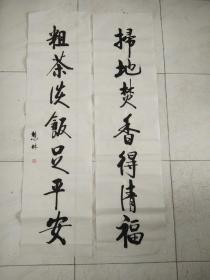 掃地焚香得清福
粗茶淡飯足平安